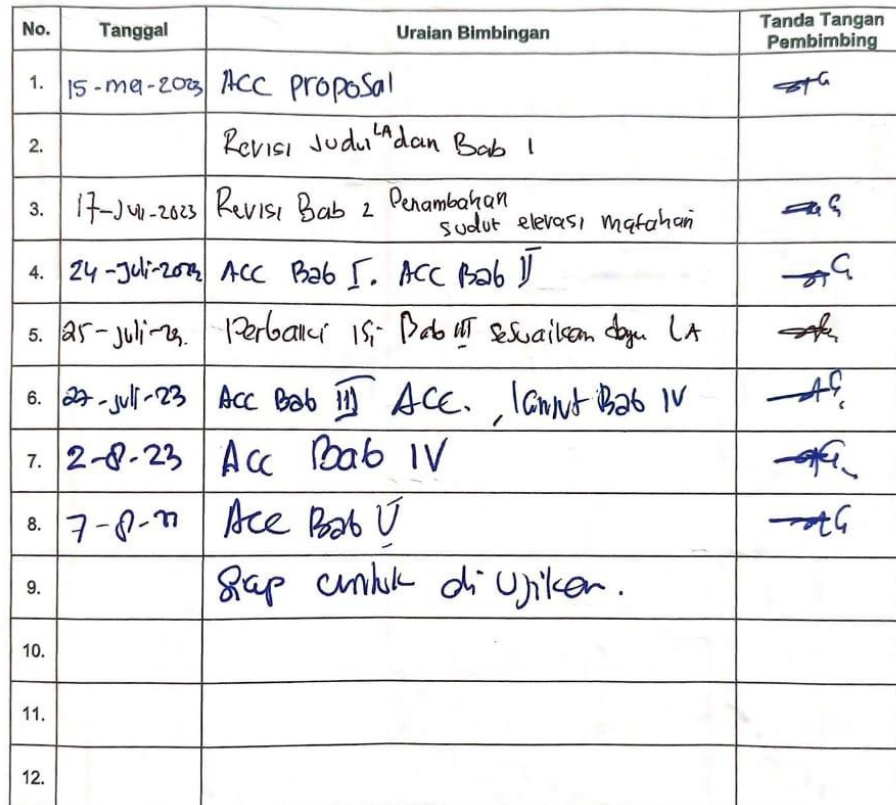 No. Tanggal Uraian Bimbingan Tanda Tangan
Pembimbing
1. 15-mei-2023 ACC proposal
2. Revisi Judul LA dan Bab 1
3. 17-Juli-2023 Revisi Bab 2 Penambahan
sudut elevasi matahari
4. 24-Juli-2023 ACC Bab I. ACC Bab II
5. 25-Juli-23. Perbaiki isi Bab III sesuaikan dgn LA
6. 27-Juli-23 Acc Bab III ACC., lanjut Bab IV
7. 2-8-23 Acc Bab IV
8. 7-8- Acc Bab V
9. Siap untuk di Ujikan.
10.
11.
12.